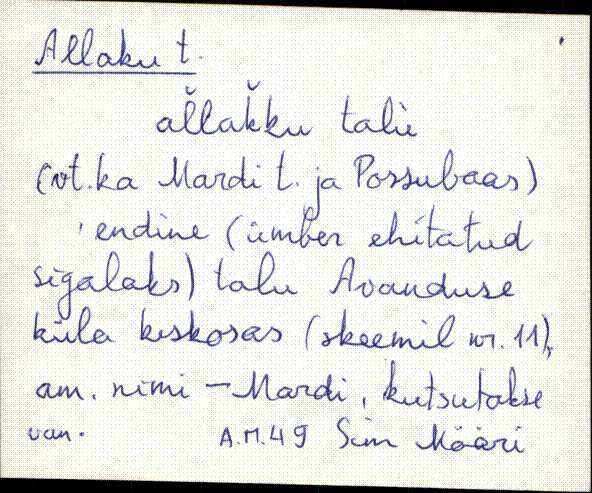 Allaku t.
al̆lak̆ku talu
(vt. ka Mardi t. ja Possubaas)
endine (ümber ehitatud
sigalaks) talu Avanduse
küla keskosas (skeemil nr. 11),
am. nimi – Mardi, kutsutakse
van. A.M.49 Sim Määri